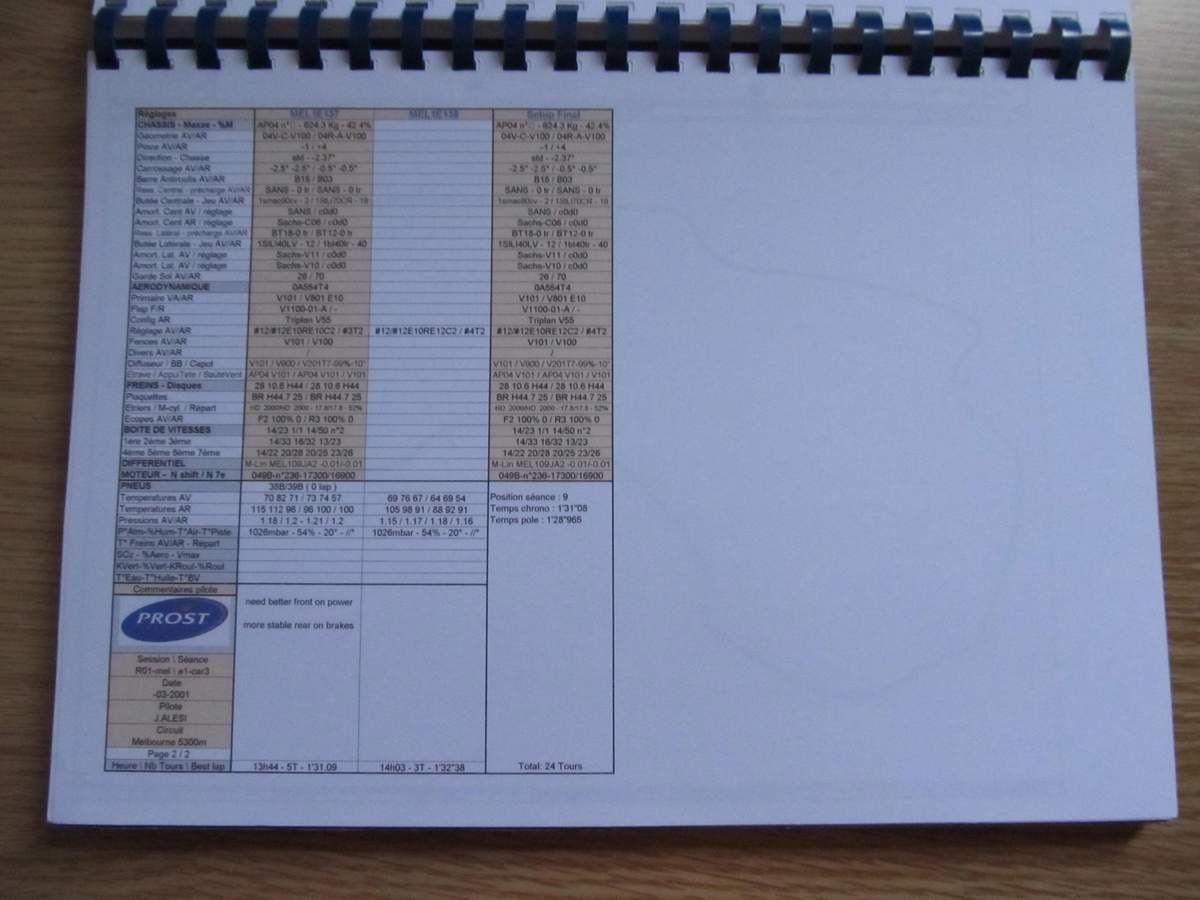 Réglages MEL1E137 MEL1E138 Setup Final
CHASSIS - Masse - %M AP04 n° - 624.3 Kg - 42.4% AP04 n° - 624.3 Kg - 42.4%
Géométrie AV/AR 04V-C-V100 / 04R-A-V100 04V-C-V100 / 04R-A-V100
Pince AV/AR -1 / +4 -1 / +4
Direction - Chasse std - -2.37° std - -2.37°
Carrossage AV/AR -2.5° -2.5° / -0.5° -0.5° -2.5° -2.5° / -0.5° -0.5°
Barre Antiroulis AV/AR B15 / B03 B15 / B03
Ress. Central - précharge AV/AR SANS - 0 tr / SANS - 0 tr SANS - 0 tr / SANS - 0 tr
Butée Centrale - Jeu AV/AR
Amort. Cent AV / réglage SANS / c0d0 SANS / c0d0
Amort. Cent AR / réglage Sachs-C06 / c0d0 Sachs-C06 / c0d0
Ress. Latéral - précharge AV/AR BT18-0 tr / BT12-0 tr BT18-0 tr / BT12-0 tr
Butée Latérale - Jeu AV/AR 1SILI40LV - 12 / 1bl40lr - 40 1SILI40LV - 12 / 1bl40lr - 40
Amort. Lat. AV / réglage Sachs-V11 / c0d0 Sachs-V11 / c0d0
Amort. Lat. AV / réglage Sachs-V10 / c0d0 Sachs-V10 / c0d0
Garde Sol AV/AR 26 / 70 26 / 70
AERODYNAMIQUE 0A554T4 0A554T4
Primaire VA/AR V101 / V801 E10 V101 / V801 E10
Flap F/R V1100-01-A / - V1100-01-A / -
Config AR Triplan V55 Triplan V55
Réglage AV/AR #12/#12E10RE10C2 / #3T2 #12/#12E10RE12C2 / #4T2 #12/#12E10RE12C2 / #4T2
Fences AV/AR V101 / V100 V101 / V100
Divers AV/AR / /
Diffuseur / BB / Capot V101 / V900 / V20177-99%-10° V101 / V900 / V20177-99%-10°
Etrave / AppuiTete / SauteVent AP04 V101 / AP04 V101 / V101 AP04 V101 / AP04 V101 / V101
FREINS - Disques 28 10.6 H44 / 28 10.6 H44 28 10.6 H44 / 28 10.6 H44
Plaquettes BR H44.7 25 / BR H44.7 25 BR H44.7 25 / BR H44.7 25
Etriers / M-cyl. / Répart HD 2000/HD 2000 - 17.8/17.8 - 52% HD 2000/HD 2000 - 17.8/17.8 - 52%
Ecopes AV/AR F2 100% 0 / R3 100% 0 F2 100% 0 / R3 100% 0
BOITE DE VITESSES 14/23 1/1 14/50 n°2 14/23 1/1 14/50 n°2
1ère 2ème 3ème 14/33 16/32 13/23 14/33 16/32 13/23
4ème 5ème 6ème 7ème 14/22 20/28 20/25 23/26 14/22 20/28 20/25 23/26
DIFFERENTIEL M-Lin MEL109JA2 -0.01/-0.01 M-Lin MEL109JA2 -0.01/-0.01
MOTEUR - N shift / N 7e 049B-n°236-17300/16900 049B-n°236-17300/16900
PNEUS 35B/39B ( 0 lap )
Temperatures AV 70 82 71 / 73 74 57 69 76 67 / 64 69 54 Position séance : 9
Temperatures AR 115 112 96 / 96 100 / 100 105 98 91 / 88 92 91 Temps chrono : 1'31"08
Pressions AV/AR 1.18 / 1.2 - 1.21 / 1.2 1.15 / 1.17 / 1.18 / 1.16 Temps pole : 1'28"965
P°Atm-%Hum-T°Air-T°Piste 1026mbar - 54% - 20° - //° 1026mbar - 54% - 20° - //°
T° Freins AV/AR - Répart
SCz - %Aero - Vmax
KVert-%Vert-KRoul-%Roul
T°Eau-T°Huile-T°BV
Commentaires pilote
need better front on power
PROST
more stable rear on brakes
Session \ Séance
R01-mel \ e1-car3
Date
-03-2001
Pilote
J.ALESI
Circuit
Melbourne 5300m
Page 2 / 2
Heure \ Nb Tours \ Best lap 13h44 - 5T - 1'31.09 14h03 - 3T - 1'32"38 Total: 24 Tours